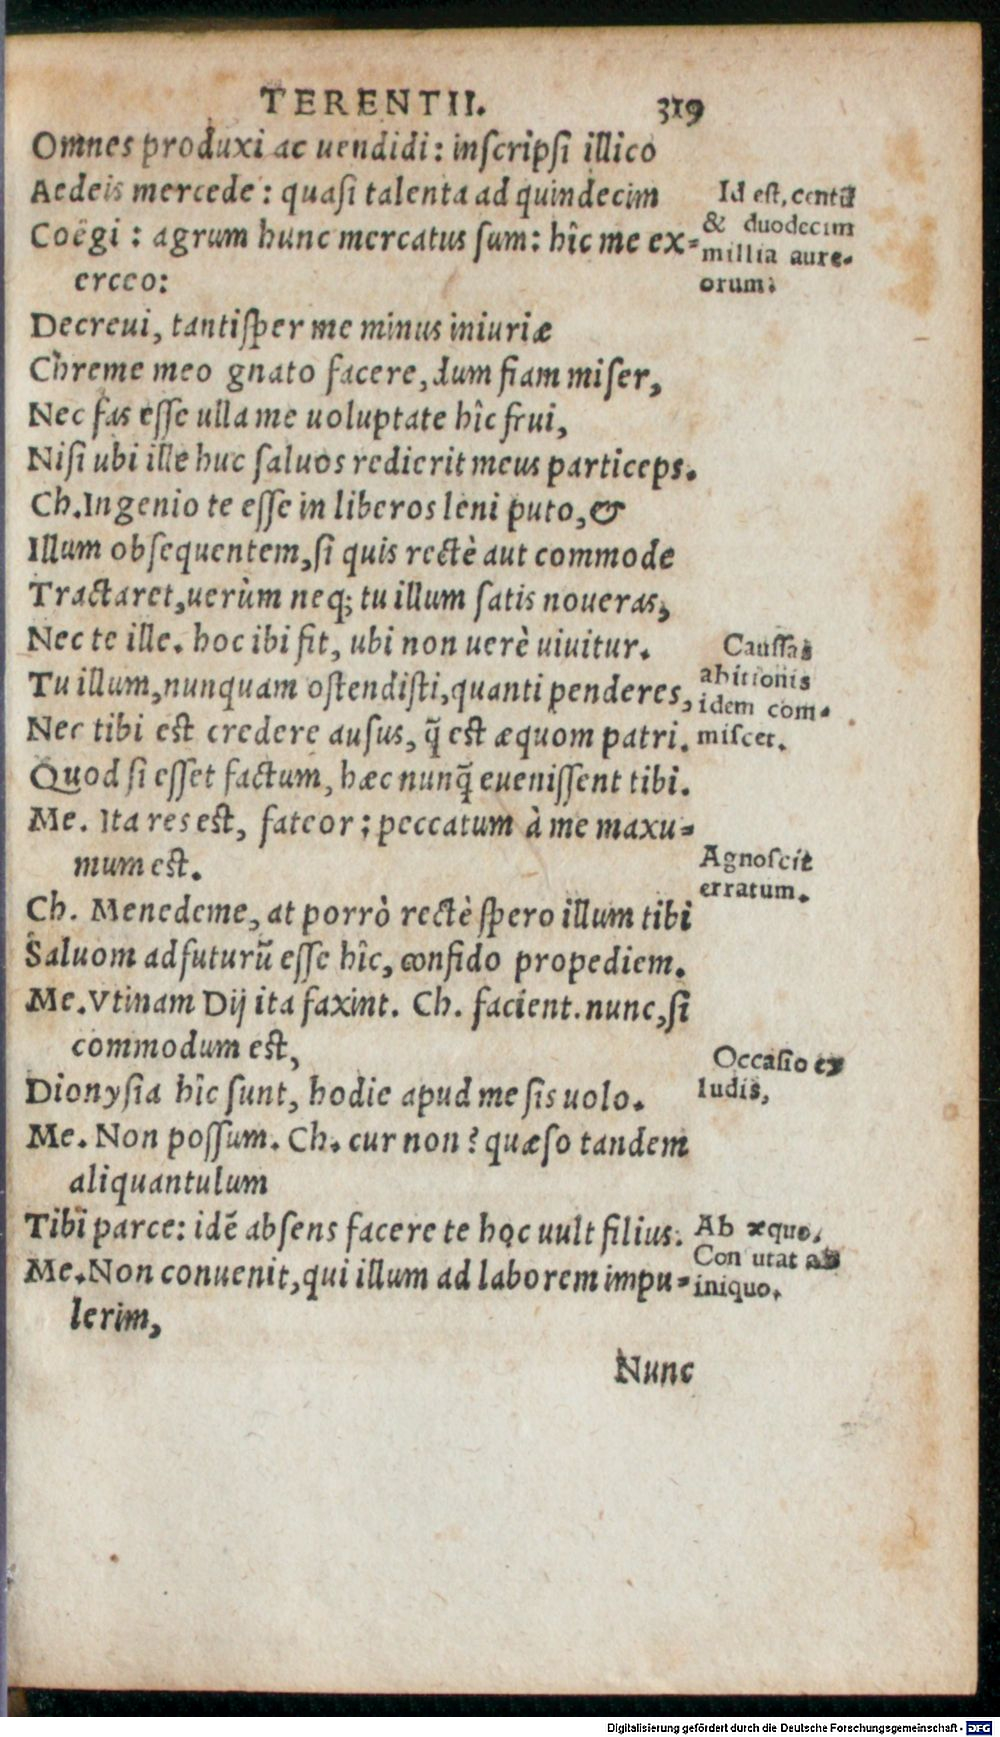 TERENTII. 319
Omnes produxi ac uendidi: inſcripſi illico
Aedeis mercede: quaſi talenta ad quindecim
Coëgi: agrum hunc mercatus ſum: hîc me ex-
erceo:
Decreui, tantiſper me minus iniuriæ
Chreme meo gnato facere, dum fiam miſer,
Nec fas eſſe ulla me uoluptate hîc frui,
Niſi ubi ille huc ſaluos redierit meus particeps.
Ch. Ingenio te eſſe in liberos leni puto, &
Illum obſequentem, ſi quis rectè aut commode
Tractaret, uerùm neq; tu illum ſatis noueras,
Nec te ille. hoc ibi fit, ubi non uerè uiuitur.
Tu illum, nunquam oſtendiſti, quanti penderes,
Nec tibi eſt credere auſus, q̃ eſt æquom patri.
Quod ſi eſſet factum, hæc nunq̃ eueniſſent tibi.
Me. Ita res eſt, fateor; peccatum à me maxu-
mum eſt.
Ch. Menedeme, at porrò rectè ſpero illum tibi
Saluom adfuturũ eſſe hîc, confido propediem.
Me. Vtinam Dij ita faxint. Ch. facient. nunc, ſi
commodum eſt,
Dionyſia hîc ſunt, hodie apud me ſis uolo.
Me. Non poſſum. Ch. cur non? quæſo tandem
aliquantulum
Tibi parce: idẽ abſens facere te hoc uult filius.
Me. Non conuenit, qui illum ad laborem impu-
lerim,
Nunc
Id eſt, centũ
& duodecim
millia aure-
orum.
Cauſſas
abitionis
idem com-
miſcet.
Agnoſcit
erratum.
Occaſio ex
ludis,
Ab æquo.
Con utat ab
iniquo.
Digitalisierung gefördert durch die Deutsche Forschungsgemeinschaft - DFG